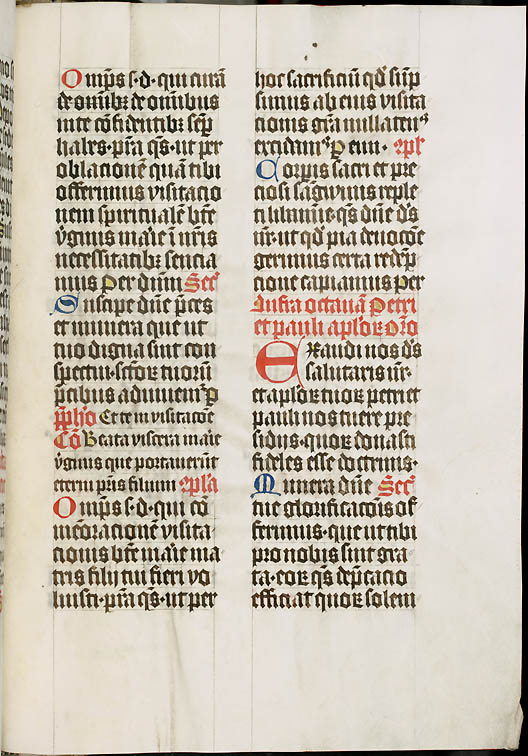 Omps s·d·qui curā
de omībꝫ de omībus
in te cōfidentibꝫ sēp
hales·pr̄a qs̄·ut per
oblationē quā tibi
offerimus visitatio
nem spiritualē btē
v̄ginis marie ī nr̄is
necessitatibꝫ sencia
mus Per dūm Secr̄
Suscipe dn̄e p̄ces
et munera que ut
tuo digna sint con
spectui·sctōꝝ tuorū
p̄cibus adiuuem̄ P
p̄pho Et te in visitatōe
Cō Beata viscera marie
v̄ginis que portauerūt
eterni pr̄is filium epla
Omps s·d·qui cō
memoracionē visita
tionis btē marie ma
tris filij tui fieri vo
luisti·pr̄a qs̄·ut per
hoc sacrificiū qd̄ sump
simus ab eius visita
tionis grā nullatenꝰ
excidamꝰ P eun· epl
Corpis sacri et pre
ciosi sāgwinis reple
ti libamine·qs̄ dn̄e ds̄
nr̄·ut qd̄ pia deuocōe
gerimus certa redēp
cione capiamus Per
Infra octauā Petri
et pauli aplōꝝ orō
Exaudi nos ds̄
salutaris nr̄·
et aplōꝝ tuoꝝ petri et
pauli nos tuere pre
sidiis·quoꝝ donasti
fideles esse doctrinis·
Munera dn̄e Secr̄
tue glorificacōis of
ferimus·que ut tibi
pro nobis sint gra
ta·eoꝝ qs̄ dep̄catio
efficiat quoꝝ solem